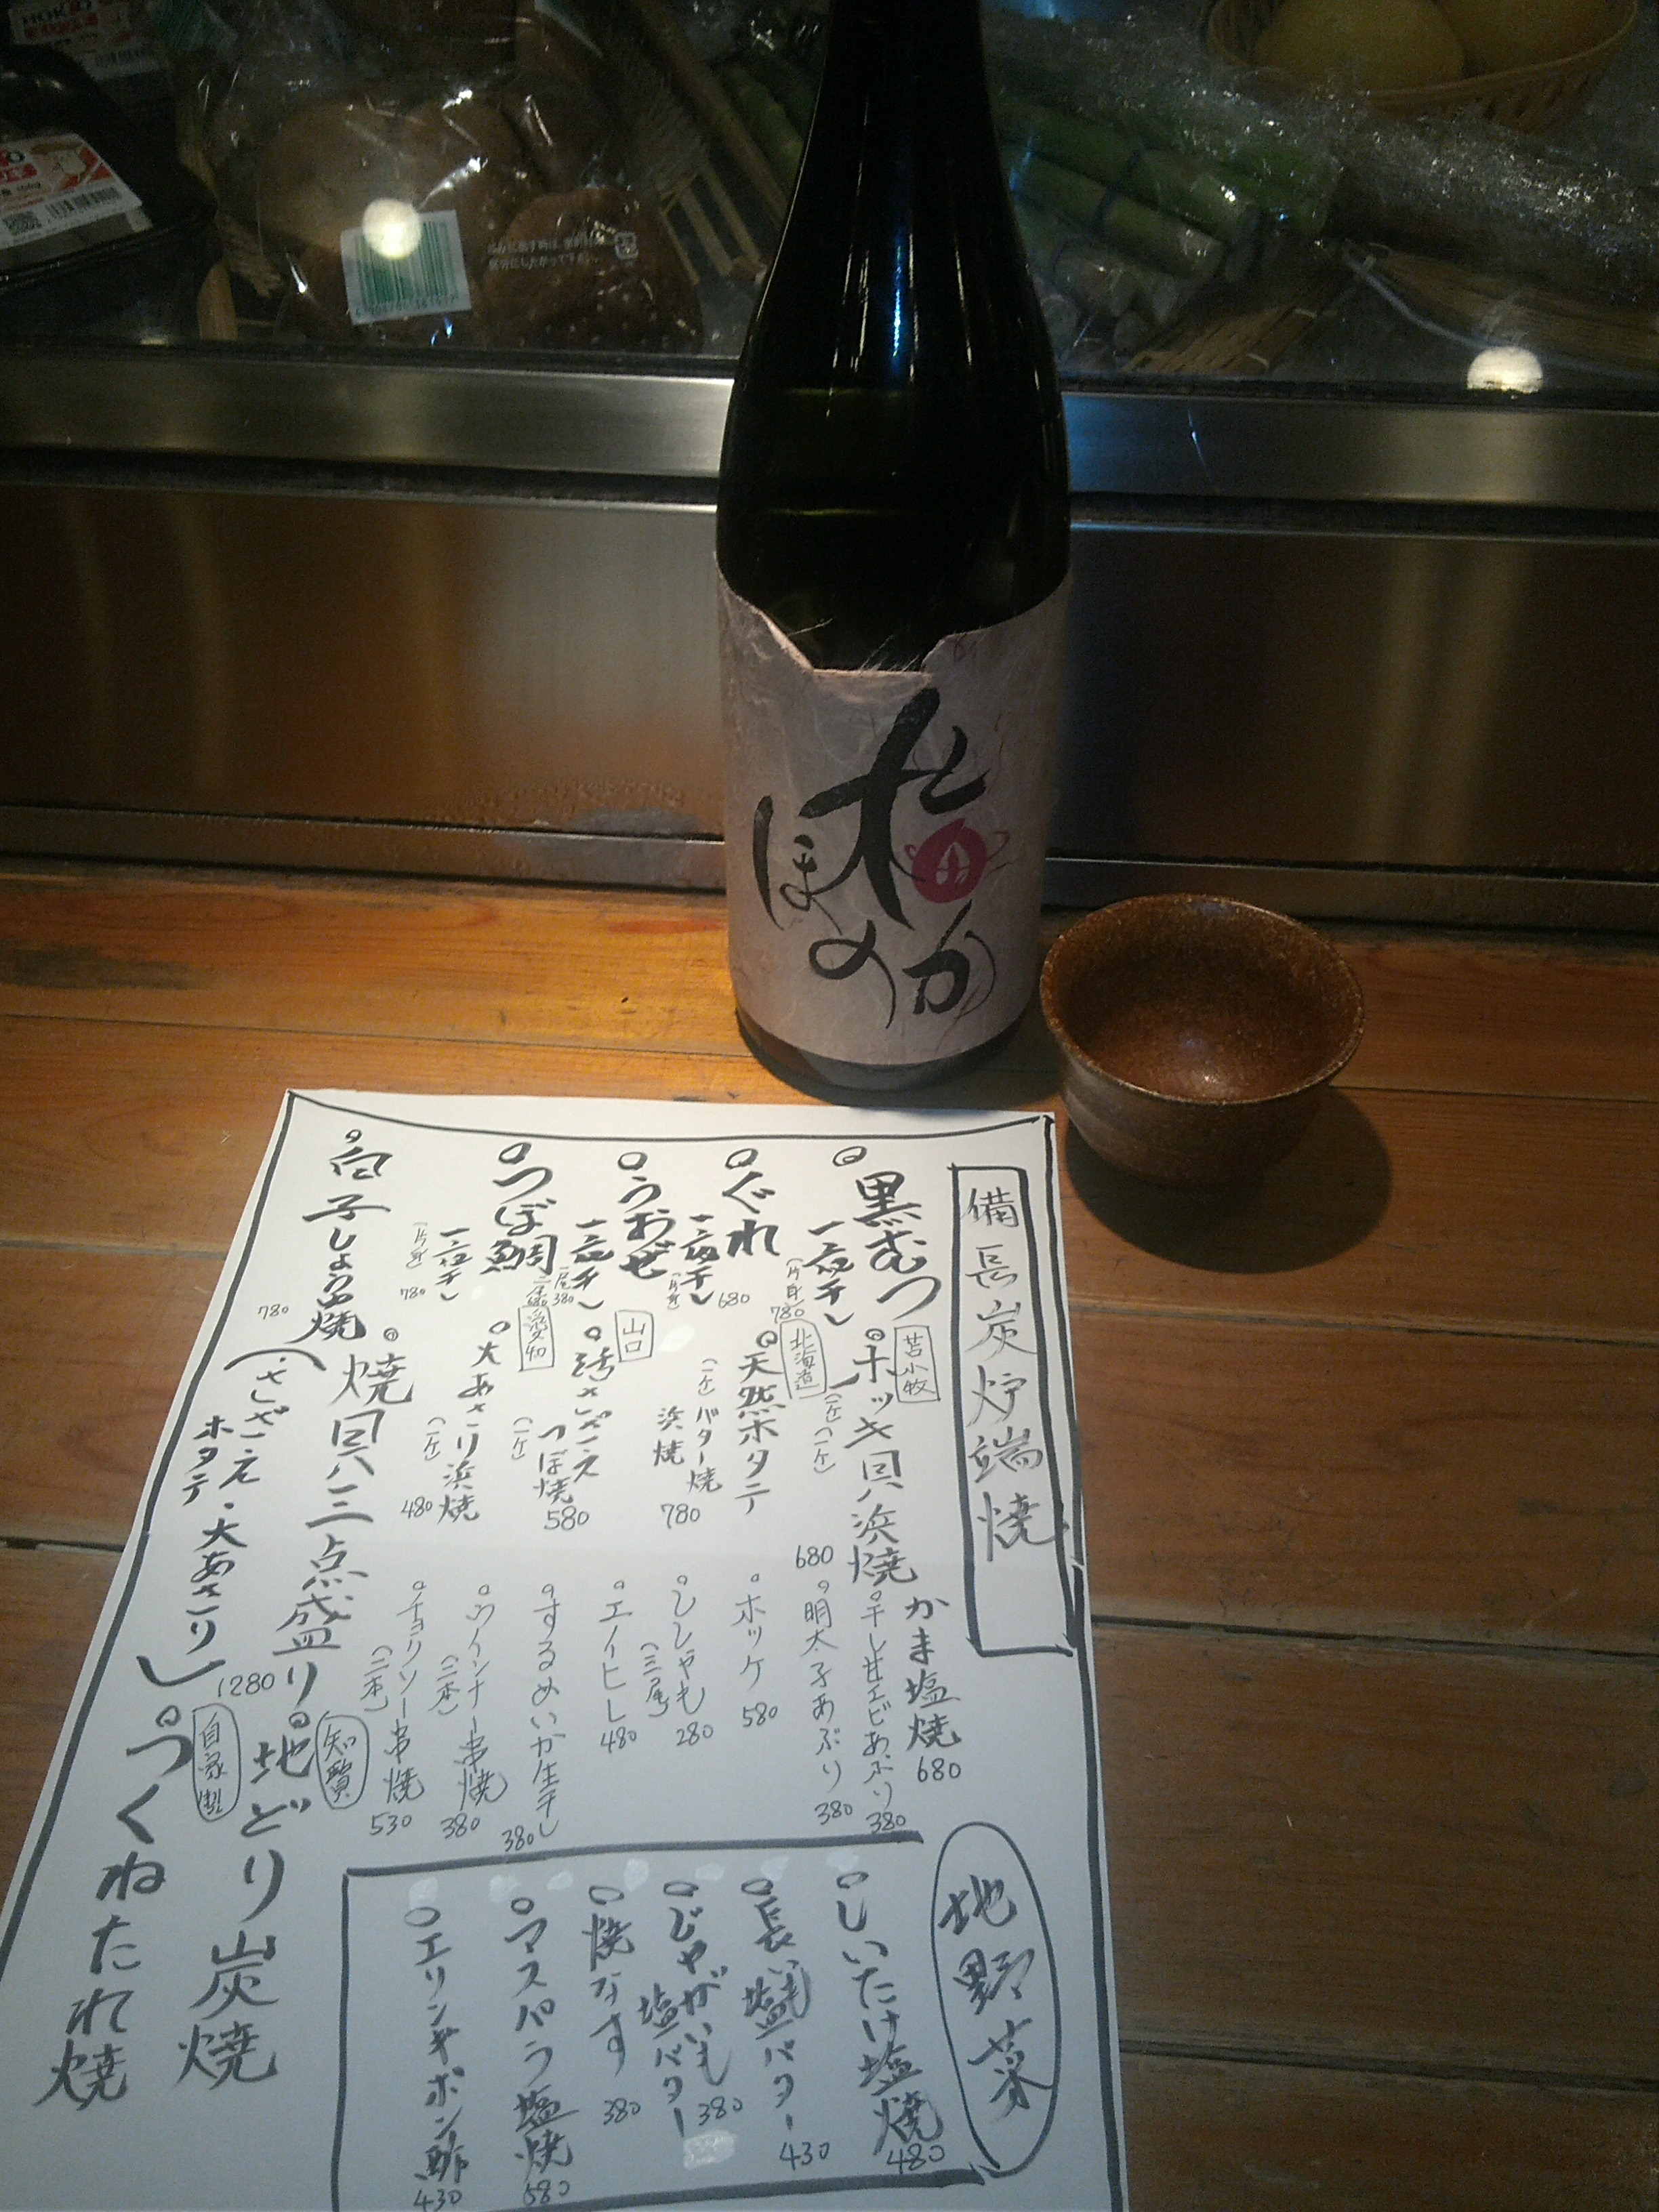 ほのか
備長炭炉端焼
黒むつ
一夜干し
(片身)
780
ぐれ
一夜干し
(片身)
680
うおぜ
一夜干し
一尾380
つぼ鯛
一夜干し
(片身)
780
白子しょうゆ焼
780
苫小牧
ホッキ貝浜焼
(一ケ)
680
北海道
天然ホタテ
(一ケ)
バター焼
浜焼
780
山口
活さざえ
つぼ焼
(一ケ)
580
愛知
大あさり浜焼
(一ケ)
480
焼貝三点盛り
(さざえ・大あさり
ホタテ)
1280
かま塩焼
680
干し甘エビあぶり
380
明太子あぶり
380
ホッケ
580
ししゃも
(三尾)
280
エイヒレ
480
するめいか生干し
380
ウインナー串焼
(二本)
380
チョリソー串焼
(二本)
530
地どり炭焼
自家製
つくねたれ焼
地野菜
しいたけ塩焼
480
長いも
塩バター
430
じゃがいも
塩バター
380
焼なす
380
アスパラ塩焼
580
エリンギポン酢
430